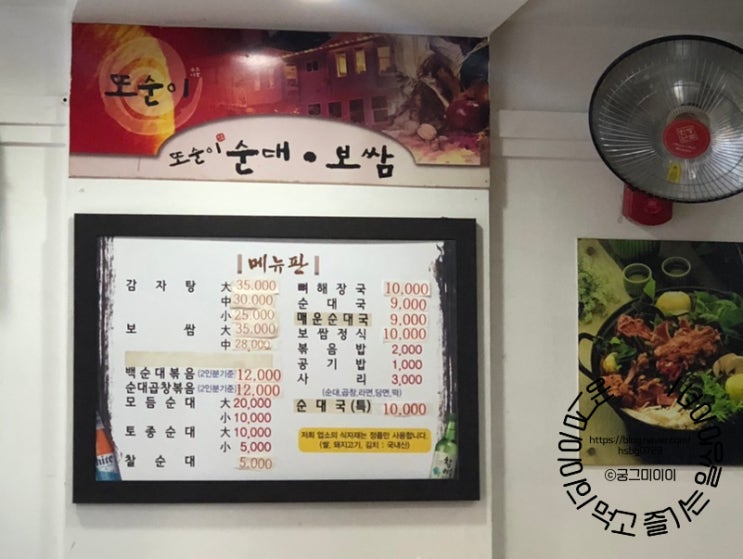 또순이
또순이 순대 • 보쌈
메뉴판
감자탕 大 35,000
中 30,000
小 25,000
보쌈 大 35,000
中 28,000
백순대볶음 (2인분기준) 12,000
순대곱창볶음 (2인분기준) 12,000
모듬순대 大 20,000
小 10,000
토종순대 大 10,000
小 5,000
찰순대 5,000
뼈해장국 10,000
순대국 9,000
매운순대국 9,000
보쌈정식 10,000
볶음밥 2,000
공기밥 1,000
사리 3,000
(순대,곱창,라면,당면,떡)
순대국(특) 10,000
저희 업소의 식자재는 정품만 사용합니다.
(쌀, 돼지고기, 김치 : 국내산)
https://blog.naver.com/
hsbg0729
©궁그미이이